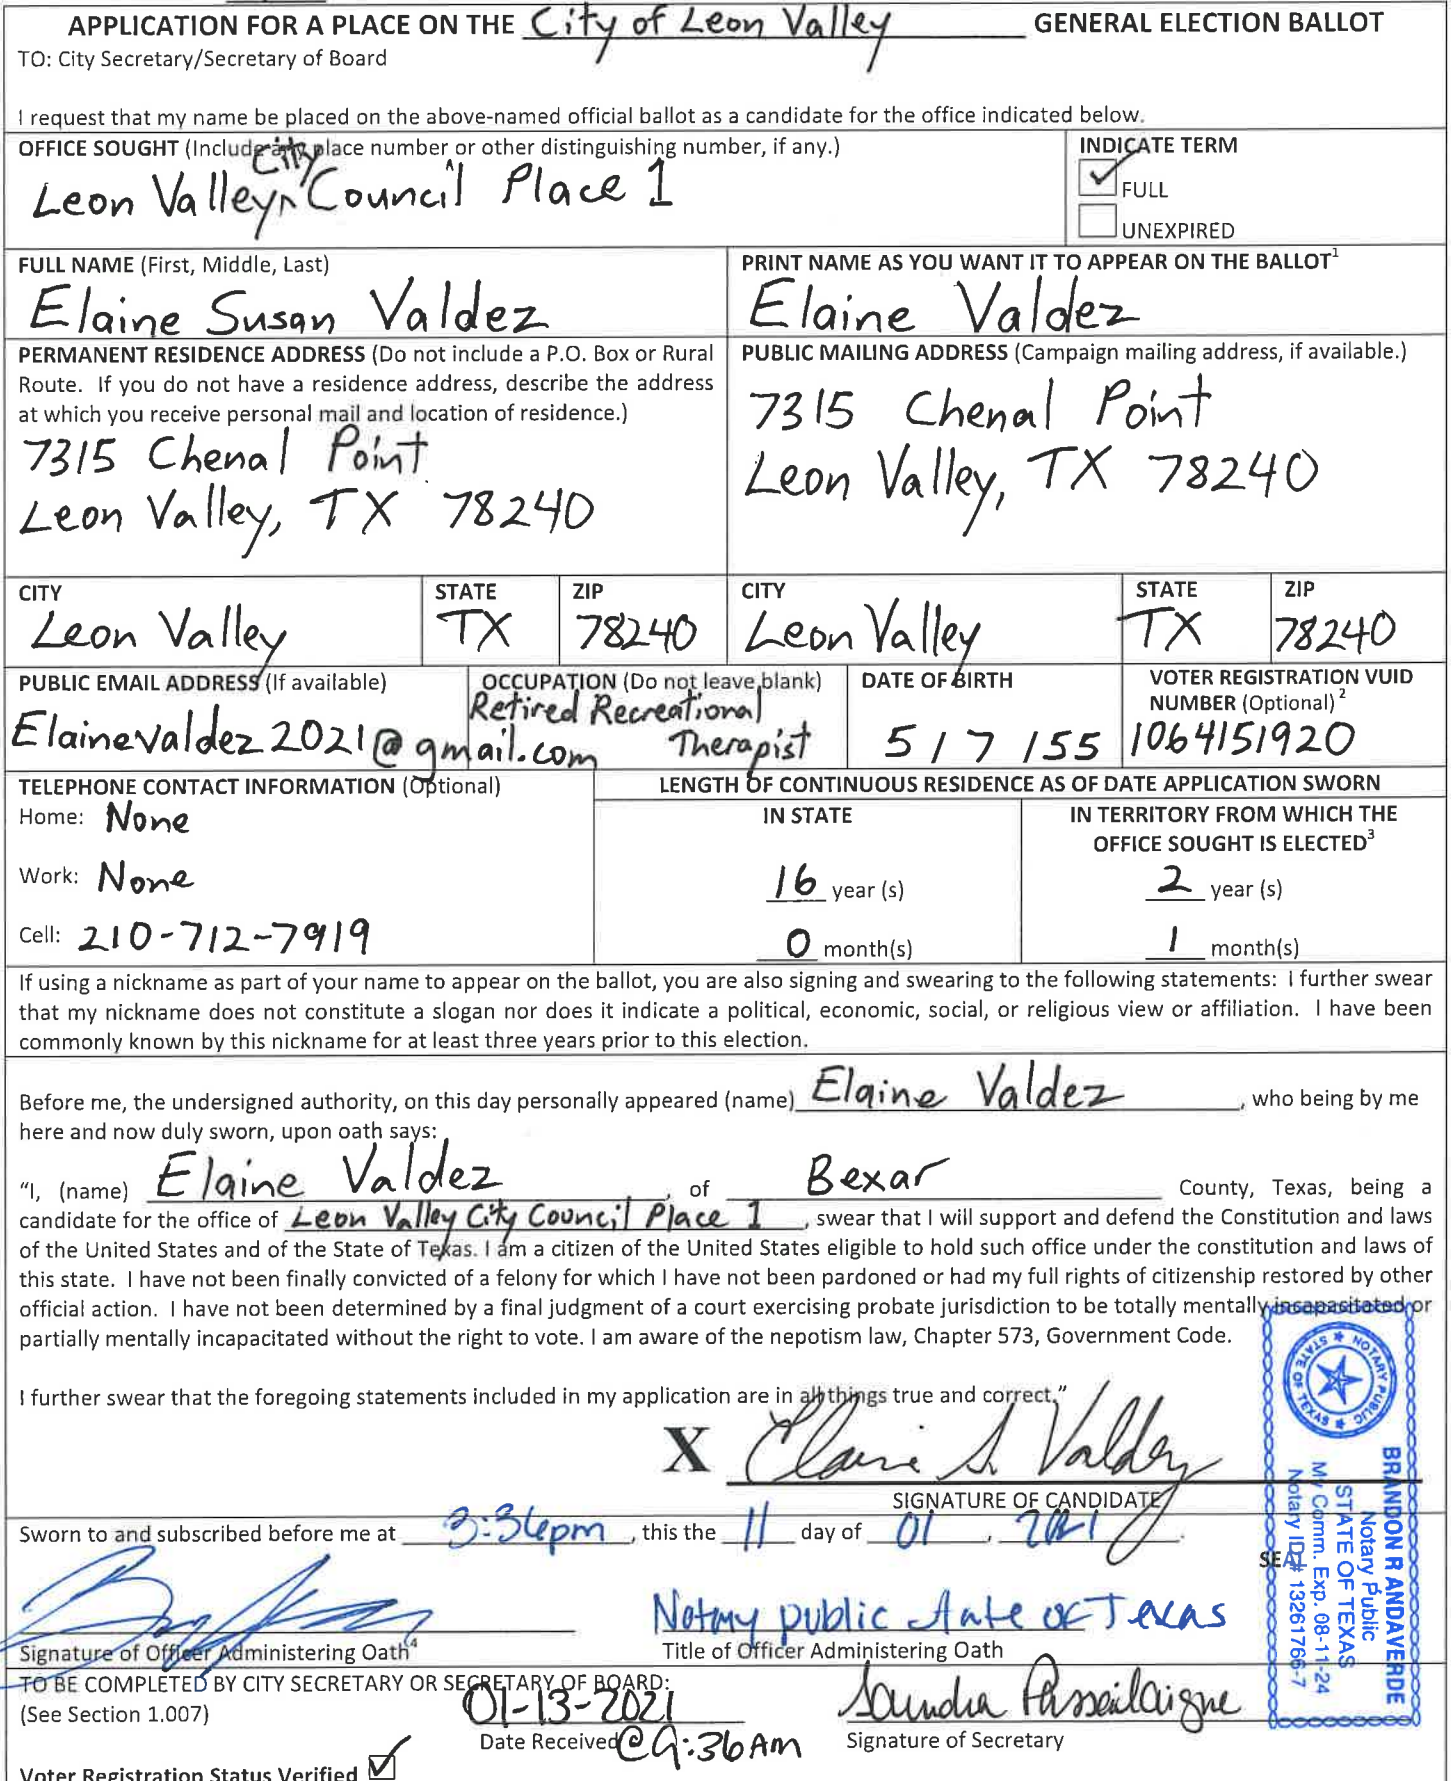 APPLICATION FOR A PLACE ON THE City of Leon Valley GENERAL ELECTION BALLOT
TO: City Secretary/Secretary of Board
I request that my name be placed on the above-named official ballot as a candidate for the office indicated below.
OFFICE SOUGHT (Include any place number or other distinguishing number, if any.)
Leon Valley City Council Place 1
INDICATE TERM
FULL
UNEXPIRED
FULL NAME (First, Middle, Last)
Elaine Susan Valdez
PRINT NAME AS YOU WANT IT TO APPEAR ON THE BALLOT1
Elaine Valdez
PERMANENT RESIDENCE ADDRESS (Do not include a P.O. Box or Rural
Route. If you do not have a residence address, describe the address
at which you receive personal mail and location of residence.)
7315 Chenal Point
Leon Valley, TX 78240
PUBLIC MAILING ADDRESS (Campaign mailing address, if available.)
7315 Chenal Point
Leon Valley, TX 78240
CITY
Leon Valley
STATE
TX
ZIP
78240
CITY
Leon Valley
STATE
TX
ZIP
78240
PUBLIC EMAIL ADDRESS (If available)
Elainevaldez2021@gmail.com
OCCUPATION (Do not leave blank)
Retired Recreational
Therapist
DATE OF BIRTH
5/7/55
VOTER REGISTRATION VUID
NUMBER (Optional)2
1064151920
TELEPHONE CONTACT INFORMATION (Optional)
Home: None
Work: None
Cell: 210-712-7919
LENGTH OF CONTINUOUS RESIDENCE AS OF DATE APPLICATION SWORN
IN STATE
16 year (s)
0 month(s)
IN TERRITORY FROM WHICH THE
OFFICE SOUGHT IS ELECTED3
2 year (s)
1 month(s)
If using a nickname as part of your name to appear on the ballot, you are also signing and swearing to the following statements: I further swear
that my nickname does not constitute a slogan nor does it indicate a political, economic, social, or religious view or affiliation. I have been
commonly known by this nickname for at least three years prior to this election.
Before me, the undersigned authority, on this day personally appeared (name) Elaine Valdez, who being by me
here and now duly sworn, upon oath says:
"I, (name) Elaine Valdez, of Bexar County, Texas, being a
candidate for the office of Leon Valley City Council Place 1, swear that I will support and defend the Constitution and laws
of the United States and of the State of Texas. I am a citizen of the United States eligible to hold such office under the constitution and laws of
this state. I have not been finally convicted of a felony for which I have not been pardoned or had my full rights of citizenship restored by other
official action. I have not been determined by a final judgment of a court exercising probate jurisdiction to be totally mentally incapacitated or
partially mentally incapacitated without the right to vote. I am aware of the nepotism law, Chapter 573, Government Code.
I further swear that the foregoing statements included in my application are in all things true and correct."
X Elaine S. Valdez
SIGNATURE OF CANDIDATE
Sworn to and subscribed before me at 3:36pm, this the 11 day of 01, 2021.
SEAL
NOTARY PUBLIC
STATE OF TEXAS
BRANDON R ANDAVERDE
Notary Public
STATE OF TEXAS
My Comm. Exp. 08-11-24
Notary ID# 13261766-7
Signature of Officer Administering Oath4
Notary public state of Texas
Title of Officer Administering Oath
TO BE COMPLETED BY CITY SECRETARY OR SECRETARY OF BOARD:
(See Section 1.007)
01-13-2021
Date Received @ 9:36 AM
Saundra Passailaigue
Signature of Secretary
Voter Registration Status Verified